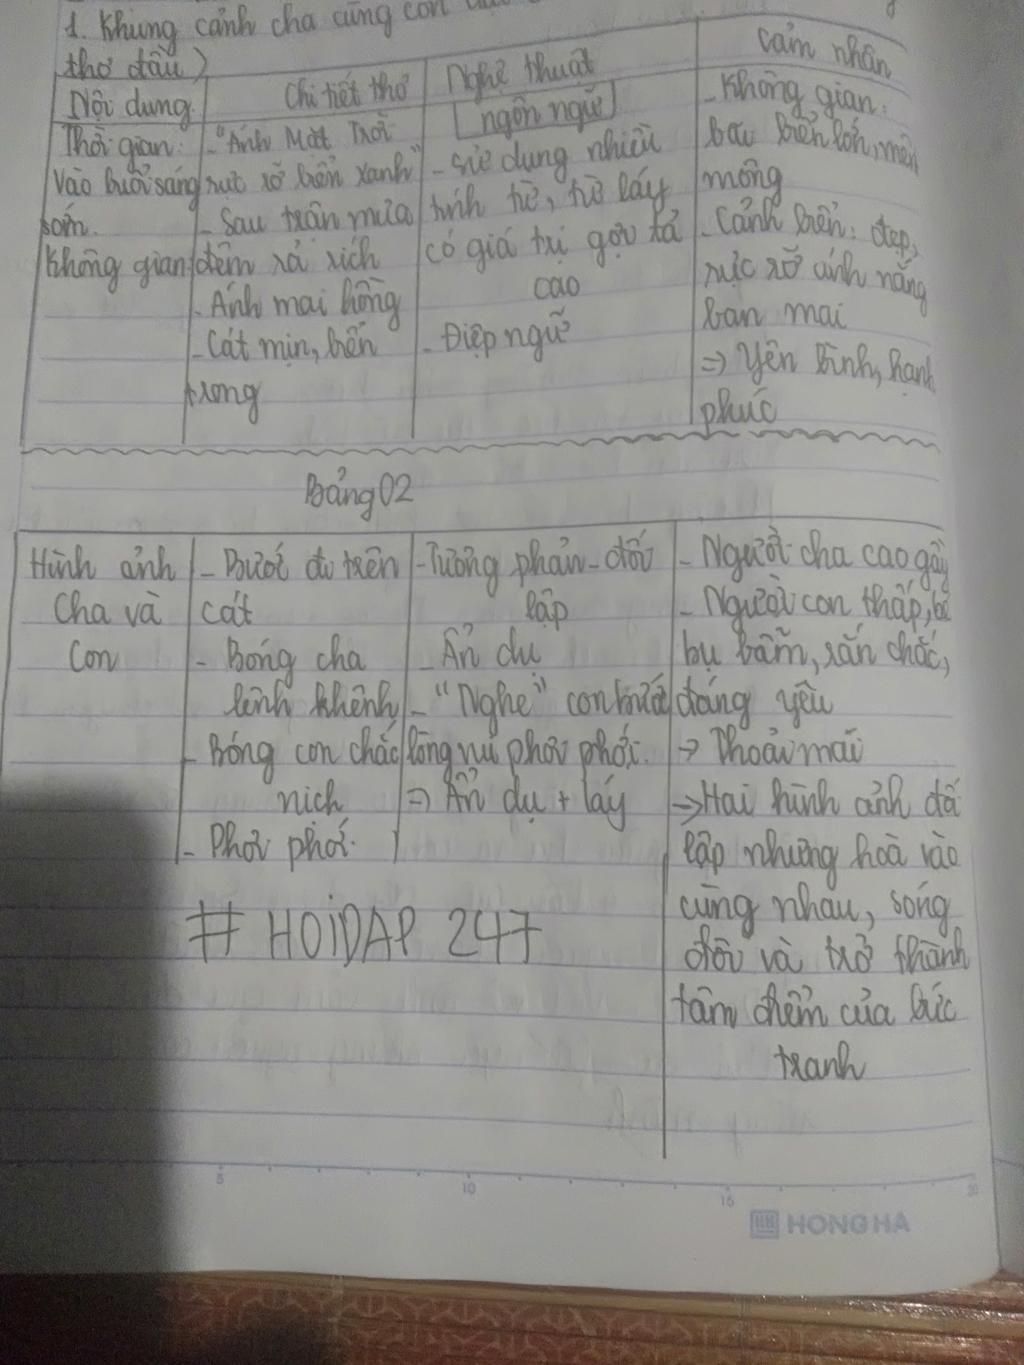 1. Khung cảnh cha cùng con
thơ đầu)
Nội dung
Chi tiết thơ
Nghệ thuật
[ngôn ngữ]
Cảm nhận
Thời gian:
Vào buổi sáng
sớm.
Không gian
- "Ánh Mặt Trời
rực rỡ biển xanh"
- Sau trận mưa
đêm rả rích
- Ánh mai hồng
- Cát mịn, biển
trong
- Sử dụng nhiều
tính từ, từ láy
có giá trị gợi tả
cao
- Điệp ngữ
- Không gian:
bao biển lớn, mên
mông
- Cảnh biển: đẹp,
rực rỡ ánh nắng
ban mai
=> Yên Bình, hạnh
phúc
Bảng 02
Hình ảnh
Cha và
Con
- Bước đi trên
cát
- Bóng cha
lênh khênh
- Bóng con chắc
nịch
- Phơi phới.
- Tương phản - đối
lập
- Ẩn dụ
- "Nghe" con bước
lòng vui phơi phới.
=> Ẩn dụ + láy
- Người cha cao gầy
- Người con thấp, bé
bụ bẫm, rắn chắc,
đáng yêu
-> Thoải mái
-> Hai hình ảnh đố
lập nhưng hoà vào
cùng nhau, sóng
đôi và trở thành
tâm điểm của bức
tranh
# HOIDAP 247
5
10
15
20
HH HONG HA